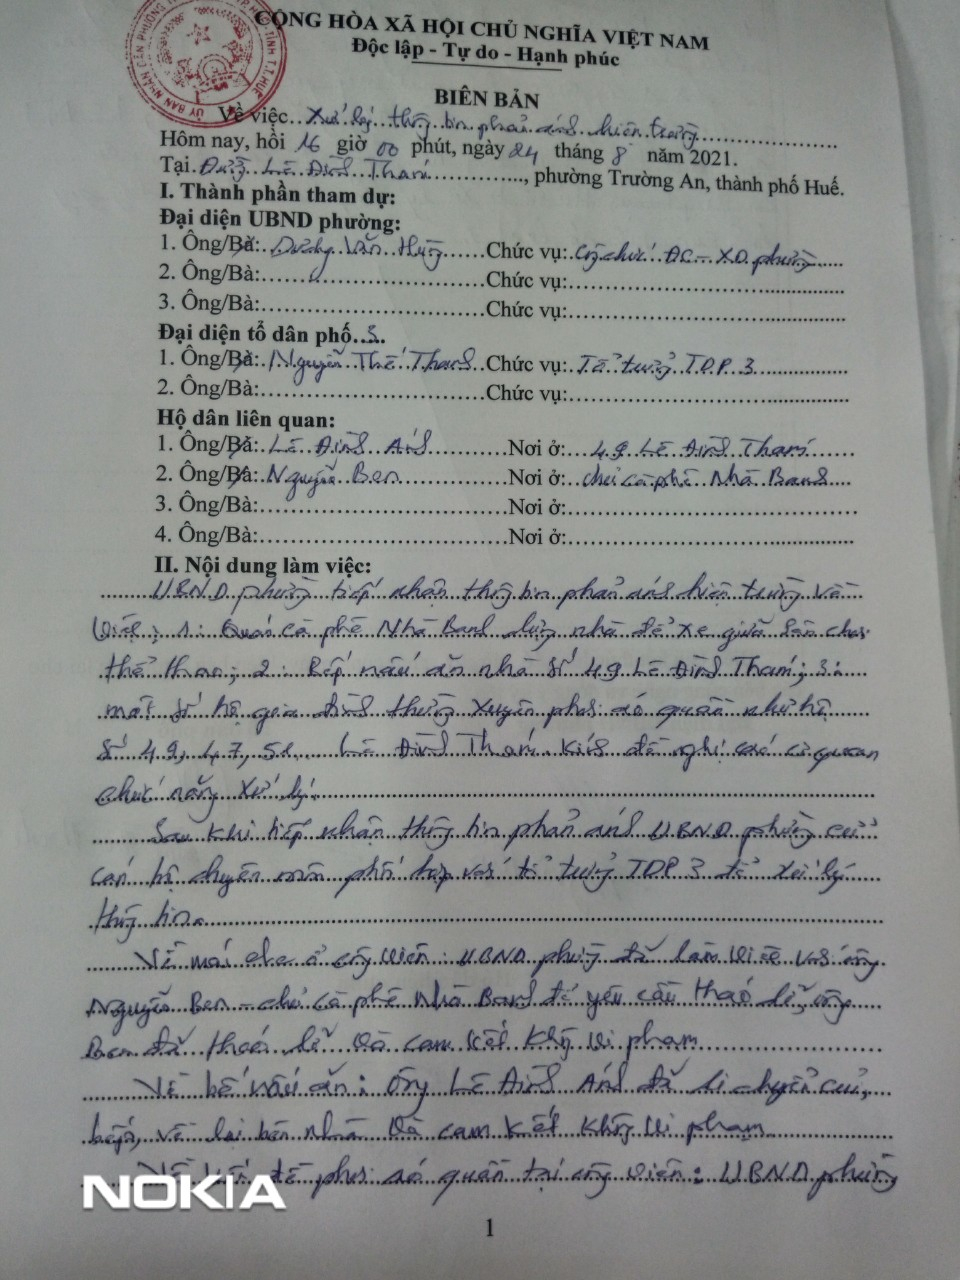 CỘNG HÒA XÃ HỘI CHỦ NGHĨA VIỆT NAM
Độc lập - Tự do - Hạnh phúc
BIÊN BẢN
Về việc...Xử lý thông tin phản ánh hiện trường
Hôm nay, hồi 16 giờ 00 phút, ngày 24 tháng 8 năm 2021.
Tại Đường Lê Đình Thám, phường Trường An, thành phố Huế.
I. Thành phần tham dự:
Đại diện UBND phường:
1. Ông/Bà: Dương Văn Hùng Chức vụ: Công chức ĐC-XD phường
2. Ông/Bà: Chức vụ:
3. Ông/Bà: Chức vụ:
Đại diện tổ dân phố 3
1. Ông/Bà: Nguyễn Thế Thanh Chức vụ: Tổ trưởng TDP 3
2. Ông/Bà: Chức vụ:
Hộ dân liên quan:
1. Ông/Bà: Lê Đình Ánh Nơi ở: 49 Lê Đình Thám
2. Ông/Bà: Nguyễn Ben Nơi ở: chủ cà phê Nhã Banh
3. Ông/Bà: Nơi ở:
4. Ông/Bà: Nơi ở:
II. Nội dung làm việc:
UBND phường tiếp nhận thông tin phản ánh hiện trường về
việc: 1: Quán cà phê Nhã Banh dựng nhà để xe giữa sân chơi
thể thao; 2: Bếp nấu ăn nhà số 49 Lê Đình Thám; 3:
một số hộ gia đình thường xuyên phơi áo quần như hộ
số 49, 47, 51... Lê Đình Thám. Kính đề nghị các cơ quan
chức năng xử lý.
Sau khi tiếp nhận thông tin phản ánh UBND phường cử
cán bộ chuyên môn phối hợp với tổ trưởng TDP 3 để xử lý
thông tin.
Về mái che ở công viên: UBND phường đã làm việc với ông
Nguyễn Ben - chủ cà phê Nhã Banh để yêu cầu tháo dỡ, ông
Ben đã tháo dỡ và cam kết không vi phạm
Về bếp nấu ăn: Ông Lê Đình Ánh đã di chuyển cái
bếp, về lại bên nhà và cam kết không vi phạm
Về vấn đề phơi áo quần tại công viên: UBND phường
NOKIA
1